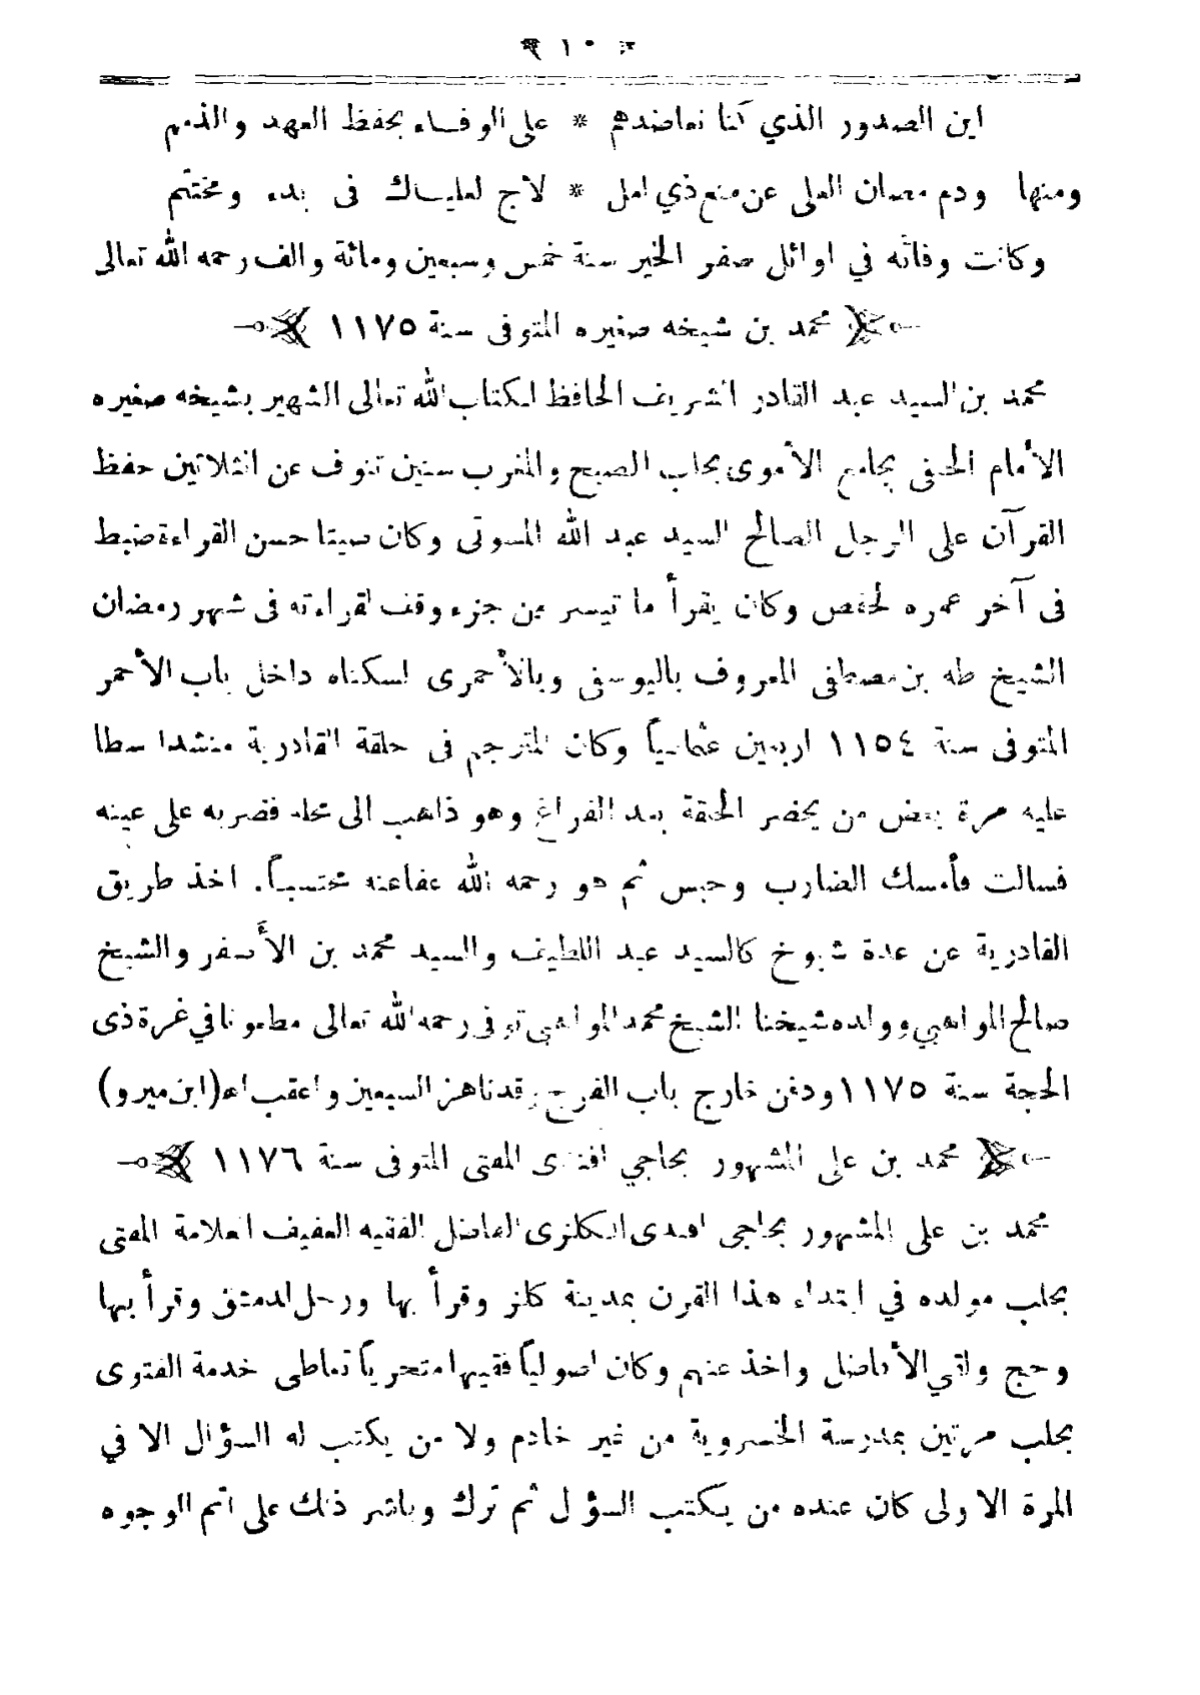 اين الصدور الذي كنا نعاضدهم * على الوفاء بحفظ العهد والذمم
ومنها ودم مصان العلى عن منع ذي امل * لاج لعلياك فى بدء ومختتم
وكانت وفاته في اوائل صفر الخير سنة خمس وسبعين ومائة والف رحمه الله تعالى
محمد بن شيخه صغيره المتوفى سنة ١١٧٥
محمد بن السيد عبد القادر الشريف الحافظ لكتاب الله تعالى الشهير بشيخه صغيره
الأمام الحنفى بجامع الأموى بحلب الصبح والمغرب سنين تنوف عن الثلاثين حفظ
القرآن على الرجل الصالح السيد عبد الله المسوتى وكان صيتا حسن القراءة ضبط
فى آخر عمره لحفص وكان يقرأ ما تيسر من جزء وقف لقراءته فى شهر رمضان
الشيخ طه بن مصطفى المعروف باليوسفى وبالأحمرى لسكناه داخل باب الأحمر
المتوفى سنة ١١٥٤ اربعين عثمانياً وكان المترجم فى حلقة القادرية منشدا سطا
عليه مرة بعض من يحضر الحلقة بعد الفراغ وهو ذاهب الى محله فضربه على عينه
فسالت فأمسك الضارب وحبس ثم هو رحمه الله عفاعنه محتسباً. اخذ طريق
القادرية عن عدة شيوخ كالسيد عبد اللطيف والسيد محمد بن الأصفر والشيخ
صالح المواهبي وولده شيخنا الشيخ محمد المواهبي توفى رحمه الله تعالى مطعونا في غرة ذى
الحجة سنة ١١٧٥ ودفن خارج باب الفرج وقد ناهز السبعين واعقب اه (ابن ميرو)
محمد بن على المشهور بحاجي افندى المفتى المتوفى سنة ١١٧٦
محمد بن على المشهور بحاجى افندى الكلزى الفاضل الفقيه العفيف العلامة المفتى
بحلب مولده في ابتداء هذا القرن بمدينة كلز وقرأ بها ورحل لدمشق وقرأ بها
وحج ولقي الأفاضل واخذ عنهم وكان اصولياً فقيها متحرياً تعاطى خدمة الفتوى
بحلب مرتين بمدرسة الخسروية من غير خادم ولا من يكتب له السؤال الا في
المرة الاولى كان عنده من يكتب السؤال ثم ترك وباشر ذلك على اتم الوجوه